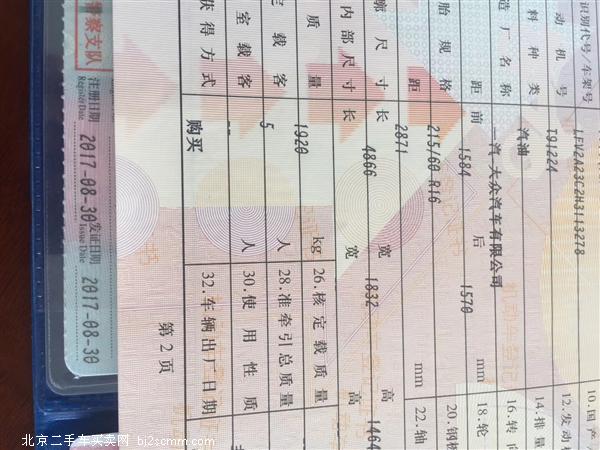 识别代号/车架号 LFV2A23C2H3113278 10.国产
动机号 T91224 12.发动机
料种类 汽油 14.排量
造厂名称 一汽-大众汽车有限公司 16.转向
距 前 1584 后 1570 mm 18.轮
胎规格 215/60 R16 20.钢板
距 2871 mm 22.轴
廓尺寸 长 4866 宽 1832 高 1464
内部尺寸 长 宽 高
质量 1920 kg 26.核定载质量
定载客 5 人 28.准牵引总质量
室载客 -- 人 30.使用性质
获得方式 购买 32.车辆出厂日期
第2页
警察支队
注册日期 2017-08-30 发证日期 2017-08-30
Register Date Issue Date
北京二手车买卖网 bj2scmm.com